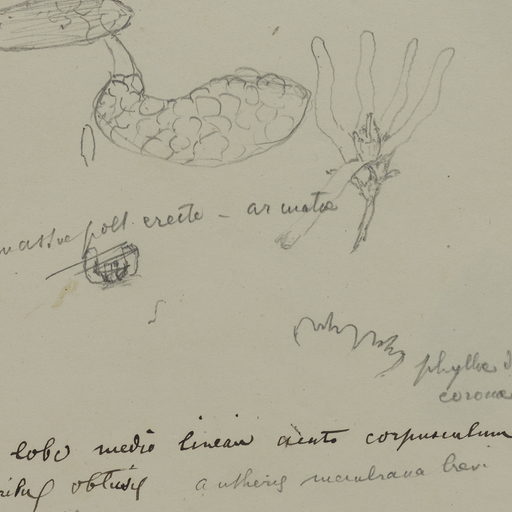 massae poll erecte - armatae
phyllae
coronae
lobo medio lineari acuto corpusculum
obtusis antheris membrana brevi